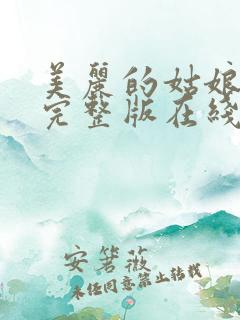 美麗的姑娘
完整版在綫
安箬薇
未经同意禁止转载